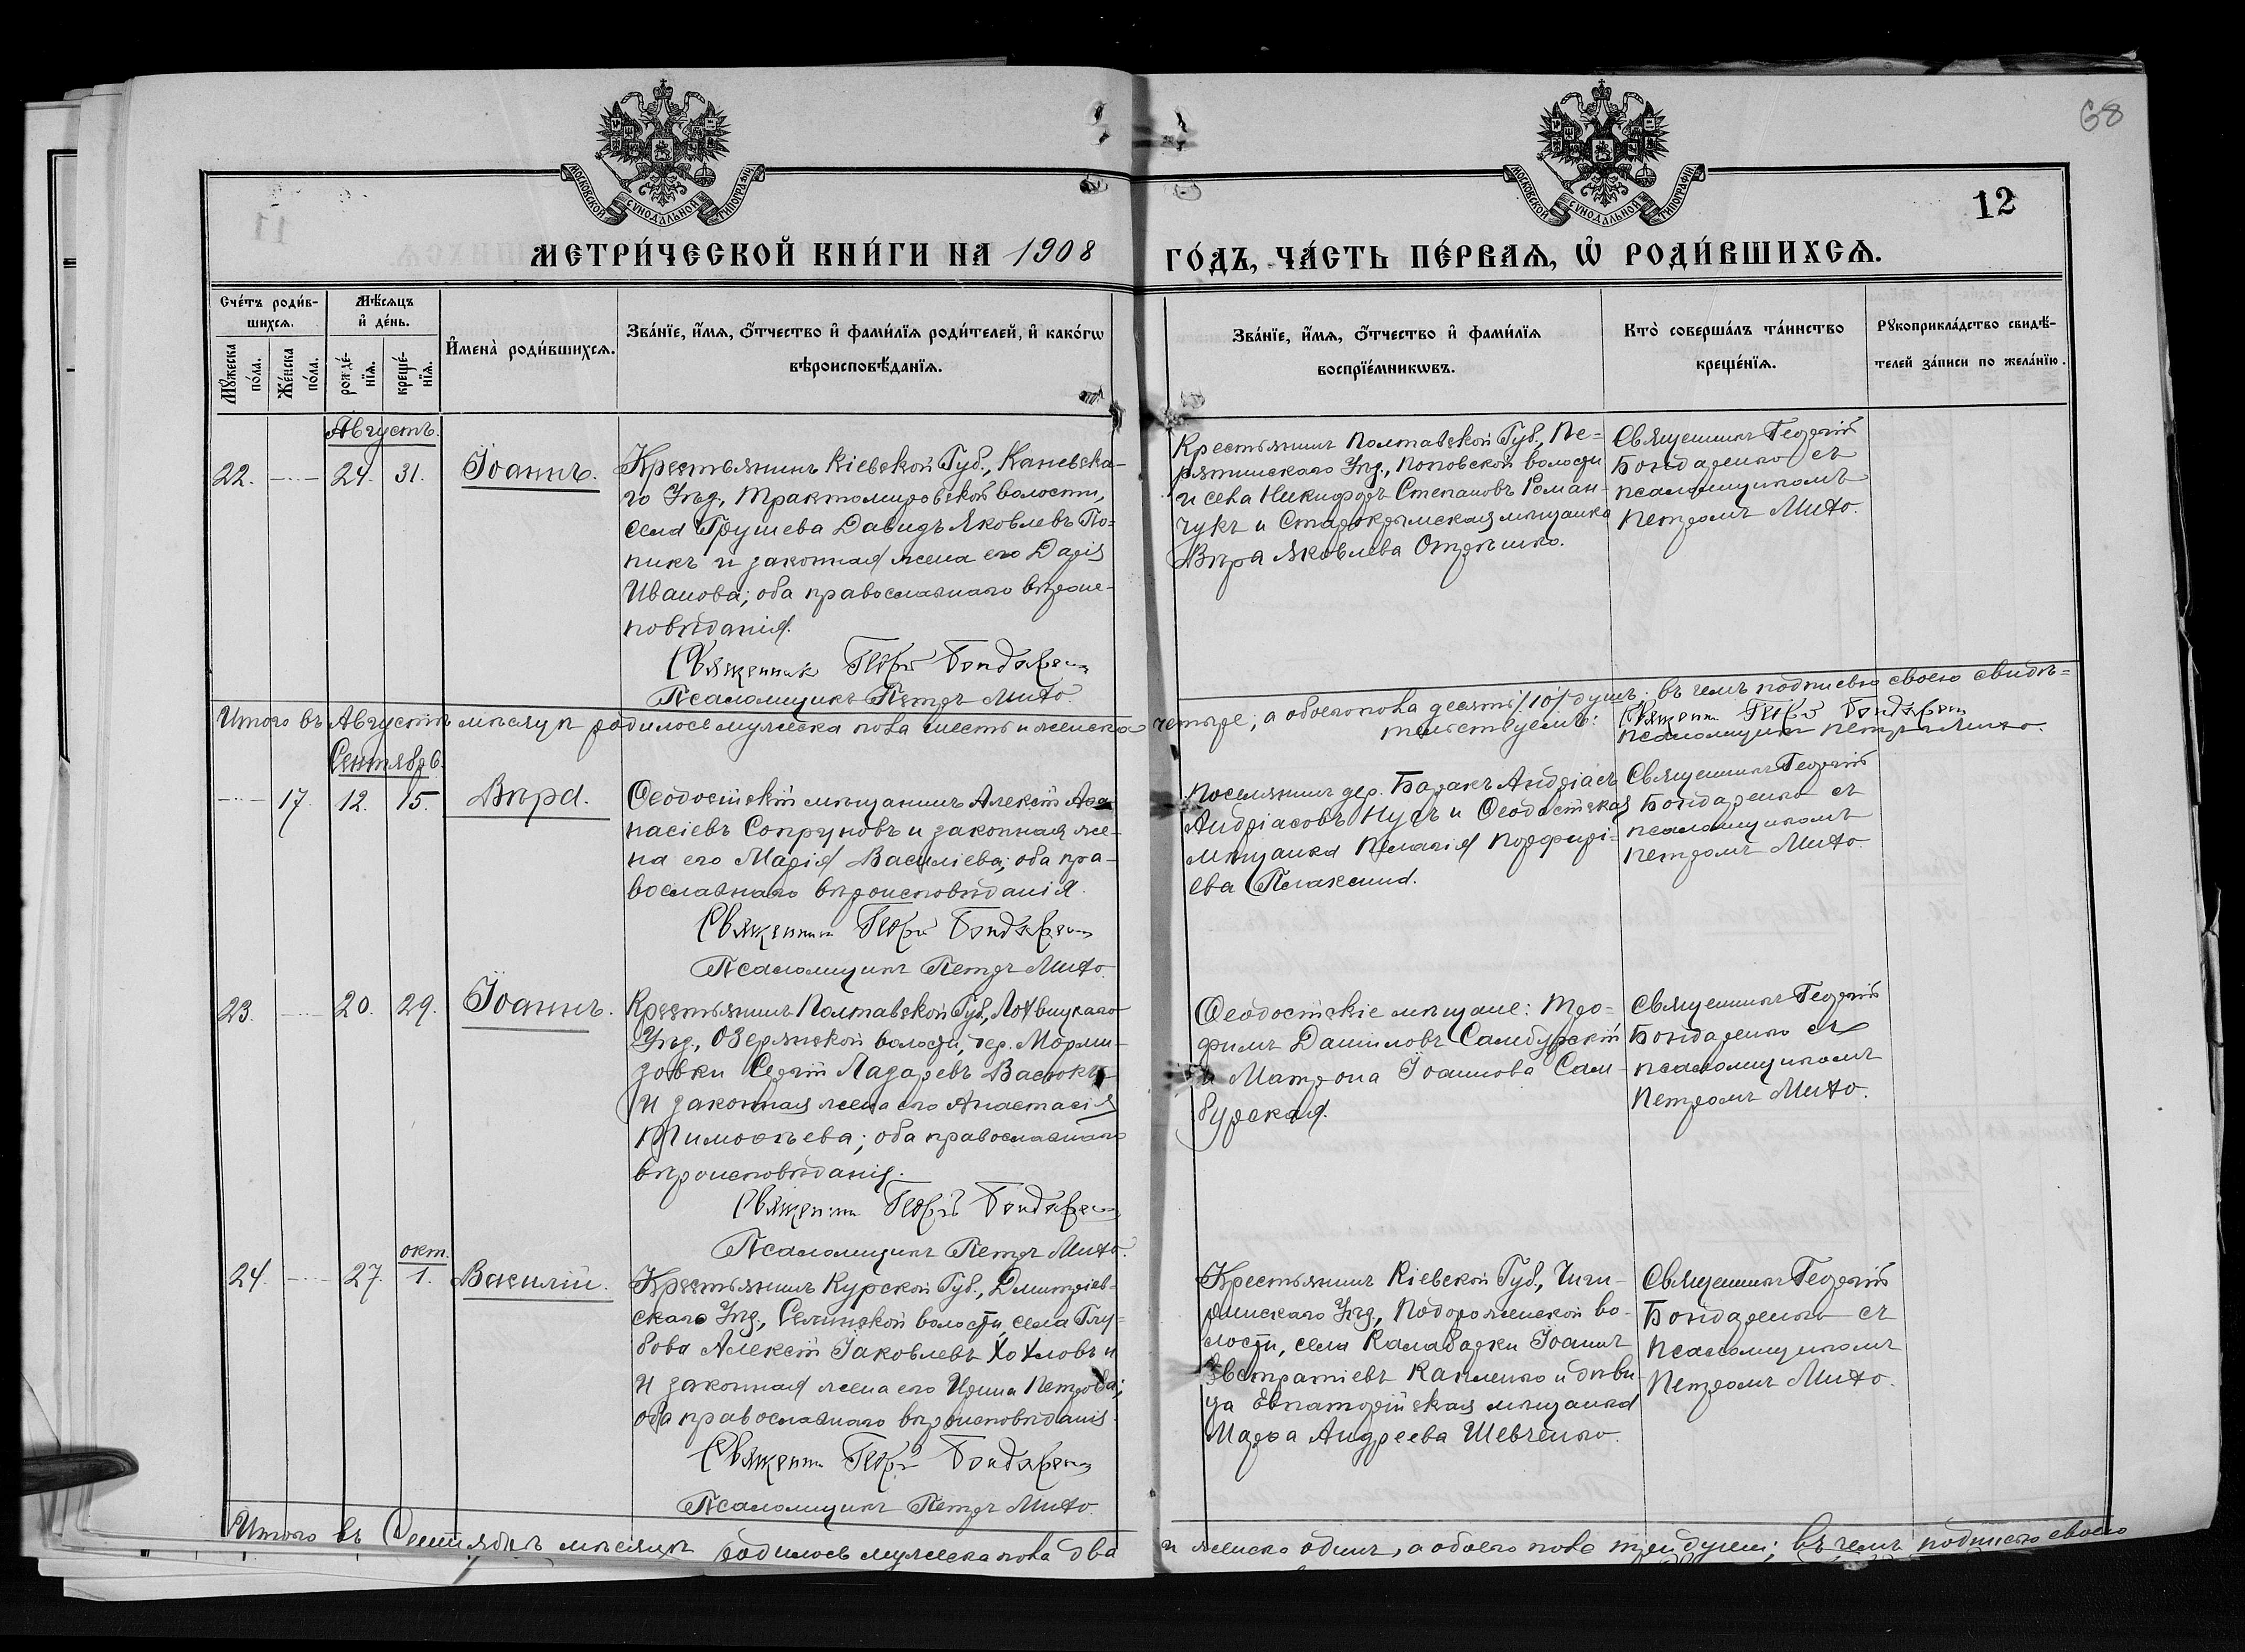 68
МОСКОВСКОЙ СѴНОДАЛЬНОЙ ТИПОГРАФІИ
МОСКОВСКОЙ СѴНОДАЛЬНОЙ ТИПОГРАФІИ
12
МЕТРИ́ЧЕСКОЙ КНИ́ГИ НА 1908
ГО́ДЪ, ЧА́СТЬ ПЕ́РВАѦ, Ѡ҆ РОДИ́ВШИХСѦ.
Сче́тъ роди́в-
шихсѧ.
Мѣ́сѧцъ
и҆ де́нь.
Мꙋ́жеска
по́ла.
Же́нска
по́ла.
рожде́-
нїѧ.
креще́-
нїѧ.
И҆мена̀ роди́вшихсѧ.
Зва́нїе, и҆́мѧ, ѻ҆́тчество и҆ фами́лїѧ роди́телей, и҆ како́гѡ
вѣроисповѣ́данїѧ.
Зва́нїе, и҆́мѧ, ѻ҆́тчество и҆ фами́лїѧ
воспрїе́мникѡвъ.
Кто̀ соверша́лъ та́инство
креще́нїѧ.
Рꙋкоприкла́дство свидѣ́-
телей за́писи по жела́нїю.
Августъ.
22. — 24. 31. Іоаннъ.
Крестьянинъ Кіевской Губ., Каневска-
го Уѣд., Трактомировской волости,
села Грушева Давидъ Яковлевъ По-
пикъ и законная жена его Дарія
Иванова; оба православнаго вѣроис-
повѣданія.
Священник Георгій Бондаренко
Псаломщикъ Петръ Михо.
Крестьянинъ Полтавской Губ., Пе-
рятинскаго Уѣд., Поповской волости
и села Никифоръ Степановъ Роман-
чукъ и Старокрымская мѣщанка
Вѣра Яковлева Отрѣшко.
Священникъ Георгій
Бондаренко съ
псаломщикомъ
Петромъ Михо.
Итого въ Августѣ мѣсяцѣ родилось мужеска пола шесть и женска четыре; а обоего пола десять /10/ душъ: въ чемъ подписью своею свидѣ-
тельствуемъ: Священник Георгій Бондаренко
псаломщикъ Петръ Михо.
Сентябрь.
— 17. 12. 15. Вѣра.
Ѳеодосійскій мѣщанинъ Алексій Аѳа-
насіевъ Сопруновъ и законная же-
на его Марія Василіева; оба пра-
вославнаго вѣроисповѣданія.
Священник Георгій Бондаренко
Псаломщикъ Петръ Михо.
Поселянинъ дер. Баракъ Андріасъ
Андріасовъ Нусъ и Ѳеодосійская
мѣщанка Пелагія Порфирі-
ева Плаксина.
Священникъ Георгій
Бондаренко съ
псаломщикомъ
Петромъ Михо.
23. — 20. 29. Іоаннъ.
Крестьянинъ Полтавской Губ., Лохвицкаго
Уѣд., Озерянской волости, дер.
Сергій Лазаревъ Васюкъ
и законная жена его Анастасія
Тимоѳѣева; оба православнаго
вѣроисповѣданія.
Священник Георгій Бондаренко
Псаломщикъ Петръ Михо.
Ѳеодосійскіе мѣщане: Тро-
фимъ Даниловъ Самбурскій
и Матрона Іоаннова Сам-
бурская.
Священникъ Георгій
Бондаренко съ
псаломщикомъ
Петромъ Михо.
окт.
24. — 27. 1. Василій.
Крестьянинъ Курской Губ., Дмитріев-
скаго Уѣд., Селинской волости, села Глу-
бова Алексій Іаковлевъ Хохловъ и
и законная жена его Ирина Петрова;
оба православнаго вѣроисповѣданія.
Священник Георгій Бондаренко
Псаломщикъ Петръ Михо.
Крестьянинъ Кіевской Губ., Чиги-
ринскаго Уѣд., Подорожнской во-
лости, села Калабарки Іоаннъ
Евстратіевъ Капленко и дѣви-
ца Евпаторійская мѣщанка
Марѳа Андреева Шевченко.
Священникъ Георгій
Бондаренко съ
Псаломщикомъ
Петромъ Михо.
Итого въ Сентябрѣ мѣсяцѣ родилось мужеска пола два и женска одинъ, а обоего пола три души; въ чемъ подписью своею